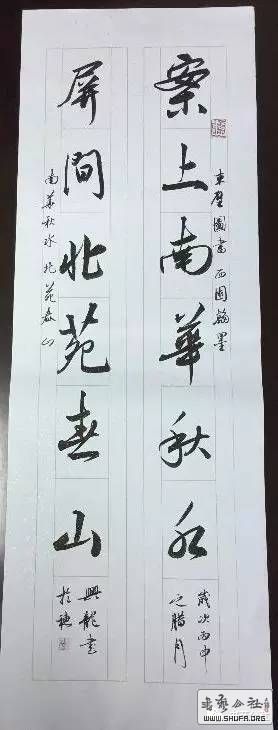 東壁圖書西園翰墨
案上南華秋水
歲次丙申
之腊月
屏間北苑春山
南華秋水北苑春山
興龍書
於穗
書藝公社
WWW.SHUFA.ORG